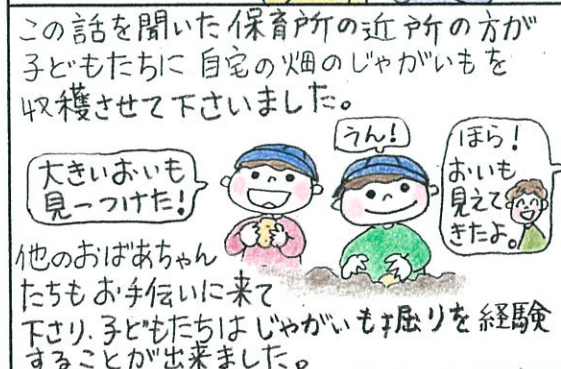 この話を聞いた保育所の近所の方が
子どもたちに自宅の畑のじゃがいもを
収穫させて下さいました。
大きいおいも
見ーつけた!
うん!
ほら!
おいも
見えて
きたよ。
他のおばあちゃん
たちもお手伝いに来て
下さり、子どもたちはじゃがいも掘りを経験
することが出来ました。